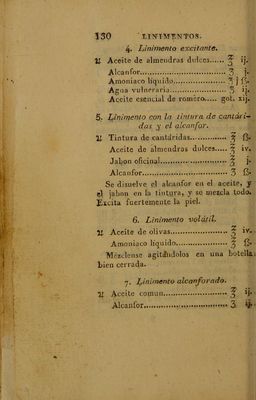 130 LINIMENTOS.
4. Linimento excitante.
♃ Aceite de almendras dulces...... ℥ ij.
Alcanfor........................ ʒ j.
Amoniaco líquido................ ʒ j ß.
Agua vulneraria................. ℥ ij.
Aceite esencial de romero..... got. xij.
5. Linimento con la tintura de cantári-
das y el alcanfor.
♃ Tintura de cantáridas........... ℥ ß.
Aceite de almendras dulces..... ℥ iv.
Jabon oficinal.................. ℥ j.
Alcanfor........................ ʒ ß.
Se disuelve el alcanfor en el aceite, y
el jabon en la tintura, y se mezcla todo.
Excita fuertemente la piel.
6. Linimento volátil.
♃ Aceite de olivas................ ℥ iv.
Amoniaco líquido................ ℥ ß.
Mézclense agitándolos en una botella
bien cerrada.
7. Linimento alcanforado.
♃ Aceite comun.................... ℥ ij.
Alcanfor........................ ʒ ij.